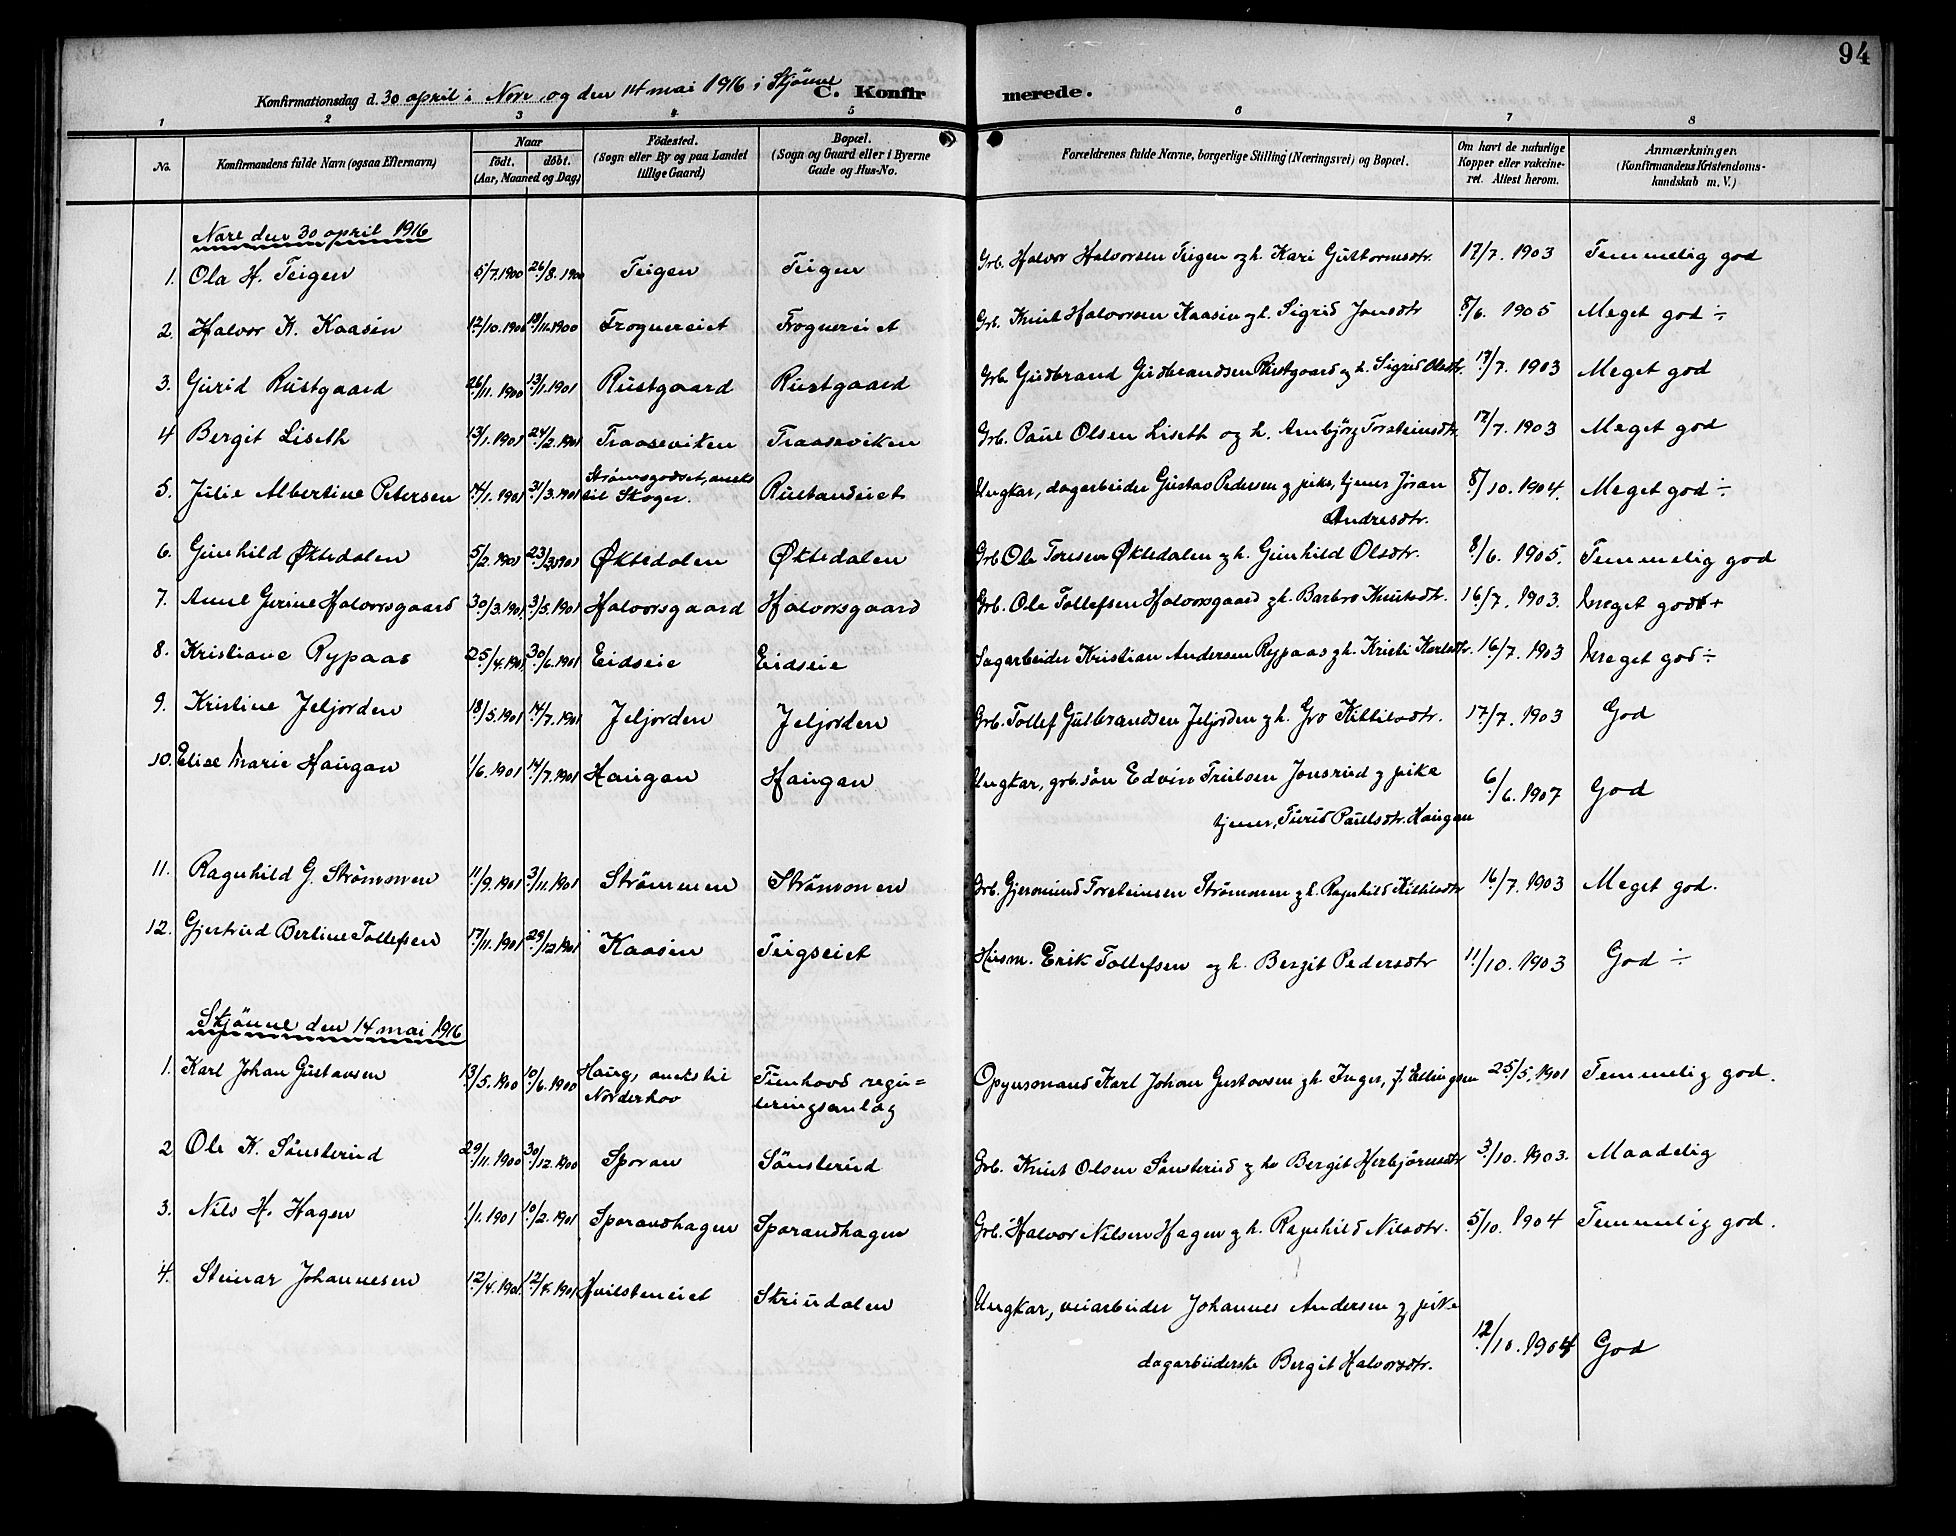 94
Konfirmationsdag d. 30 april i Nore, og den 14 mai 1916 i Skjønne
C. Konfirmerede.
1 2 3 4 5 6 7 8
No. Konfirmandens fulde Navn (ogsaa Efternavn) Naar født. døbt. (Aar, Maaned og Dag) Fødested. (Sogn eller By og paa Landet tillige Gaard) Bopæl. (Sogn og Gaard eller i Byerne Gade og Hus-No. Forældrenes fulde Navne, borgerlige Stilling (Næringsvei) og Bopæl. Om havt de naturlige Kopper eller vakcineret. Attest herom. Anmærkninger. (Konfirmandens Kristendomskundskab m. V.)
Nore den 30 april 1916
1. Ola H. Teigen 5/7.1900 26/8.1900 Teigen Teigen Grb. Halvor Halvorsen Teigen og h. Kari Guttormsdtr. 17/7. 1903 Temmelig god
2. Halvor K. Kaasin 12/10.1900 18/11.1900 Frognereiet Frognereiet Grb. Knut Halvorsen Kaasin og h. Sigrid Jonsdtr 8/6. 1905 Meget god ÷
3. Gurid Rustgaard 26/11.1900 13/1.1901 Rustgaard Rustgaard Grb. Gudbrand Gudbrandsen Rustgaard og h. Sigrid Olsdtr. 17/7. 1903 Meget god
4 Bergit Liseth 13/1.1901 24/2.1901 Traaseviken Traaseviken Grb. Paul Olsen Liseth og h. Ambjørg Torsteinsdtr. 17/7. 1903 Meget god
5. Julie Albertine Petersen 14/1.1901 31/3.1901 Strømsgodset, aneks til Skoger. Rustandeiet Ungkar, dagarbeider Gustav Pedersen og pike, tjener Joran
Andresdtr. 8/10.1904. Meget god ÷
6. Gunhild Øktedalen 5/2.1901 23/3.1901 Øktedalen Øktedalen Grb. Ole Toresen Øktedalen og h. Gunhild Olsdtr. 8/6. 1905. Temmelig god
7. Anne Gurine Halvorsgaard 30/3.1901 3/5.1901 Halvorsgaard Halvorsgaard Grb. Ole Tollefsen Halvorsgaard og h. Barbro Knutsdtr. 16/7. 1903. Meget god +
8. Kristiane Rypaas 25/4.1901 30/6.1901 Eidseie Eidseie Sagarbeider Kristian Andersen Rypaas og h. Kristi Karlsdtr. 16/7. 1903 Meget god ÷
9. Kristine Jeljorden 18/5.1901 14/7.1901 Jeljorden Jeljorden Grb. Tollef Gulbrandsen Jeljorden og h. Gro Kittilsdtr. 17/7. 1903 God
10. Elise Marie Haugan 1/6.1901 14/7.1901 Haugan Haugan Ungkar, grb.søn Edvin Trulsen Jonsrud og pike
tjener, Turid Paulsdtr. Haugan 6/6.1907 God
11. Ragnhild G. Strømmen 11/9.1901 3/11.1901 Strømmen Strømmen Grb. Gjermund Torsteinsen Strømmen og h. Ragnhild Kittilsdtr 16/7. 1903 Meget god.
12. Gjertrud Berline Tollefsen 17/11.1901 29/12.1901 Kaasen Teigseiet Husm. Erik Tollefsen og h. Bergit Pedersdtr 11/10. 1903 God ÷
Skjønne den 14 mai 1916
1. Karl Johan Gustavsen 13/5.1900 10/6.1900 Haug, aneks til Norderhov Tunhovd reguleringsanlæg Opsynsmand Karl Johan Gustavsen og h. Inger, f. Ellingsen 25/5.1901 Temmelig god.
2 Ole K. Sønsterud 29/11.1900 30/12.1900 Sporan Sønsterud Grb. Knut Olsen Sønsterud og h. Bergit Herbjørnsdtr 3/10. 1903. Maadelig
3. Nils H. Hagen 1/1.1901 10/2.1901 Sporandhagen Sporandhagen Grb. Halvor Nilsen Hagen og h. Ragnhild Nilsdtr. 5/10. 1904 Temmelig god.
4. Steinar Johannesen 12/4.1901 Hvilsteneiet Skriudalen Ungkar, veiarbeider Johannes Andersen og pike
dagarbeiderske Bergit Halvorsdtr. 12/10.1904 God